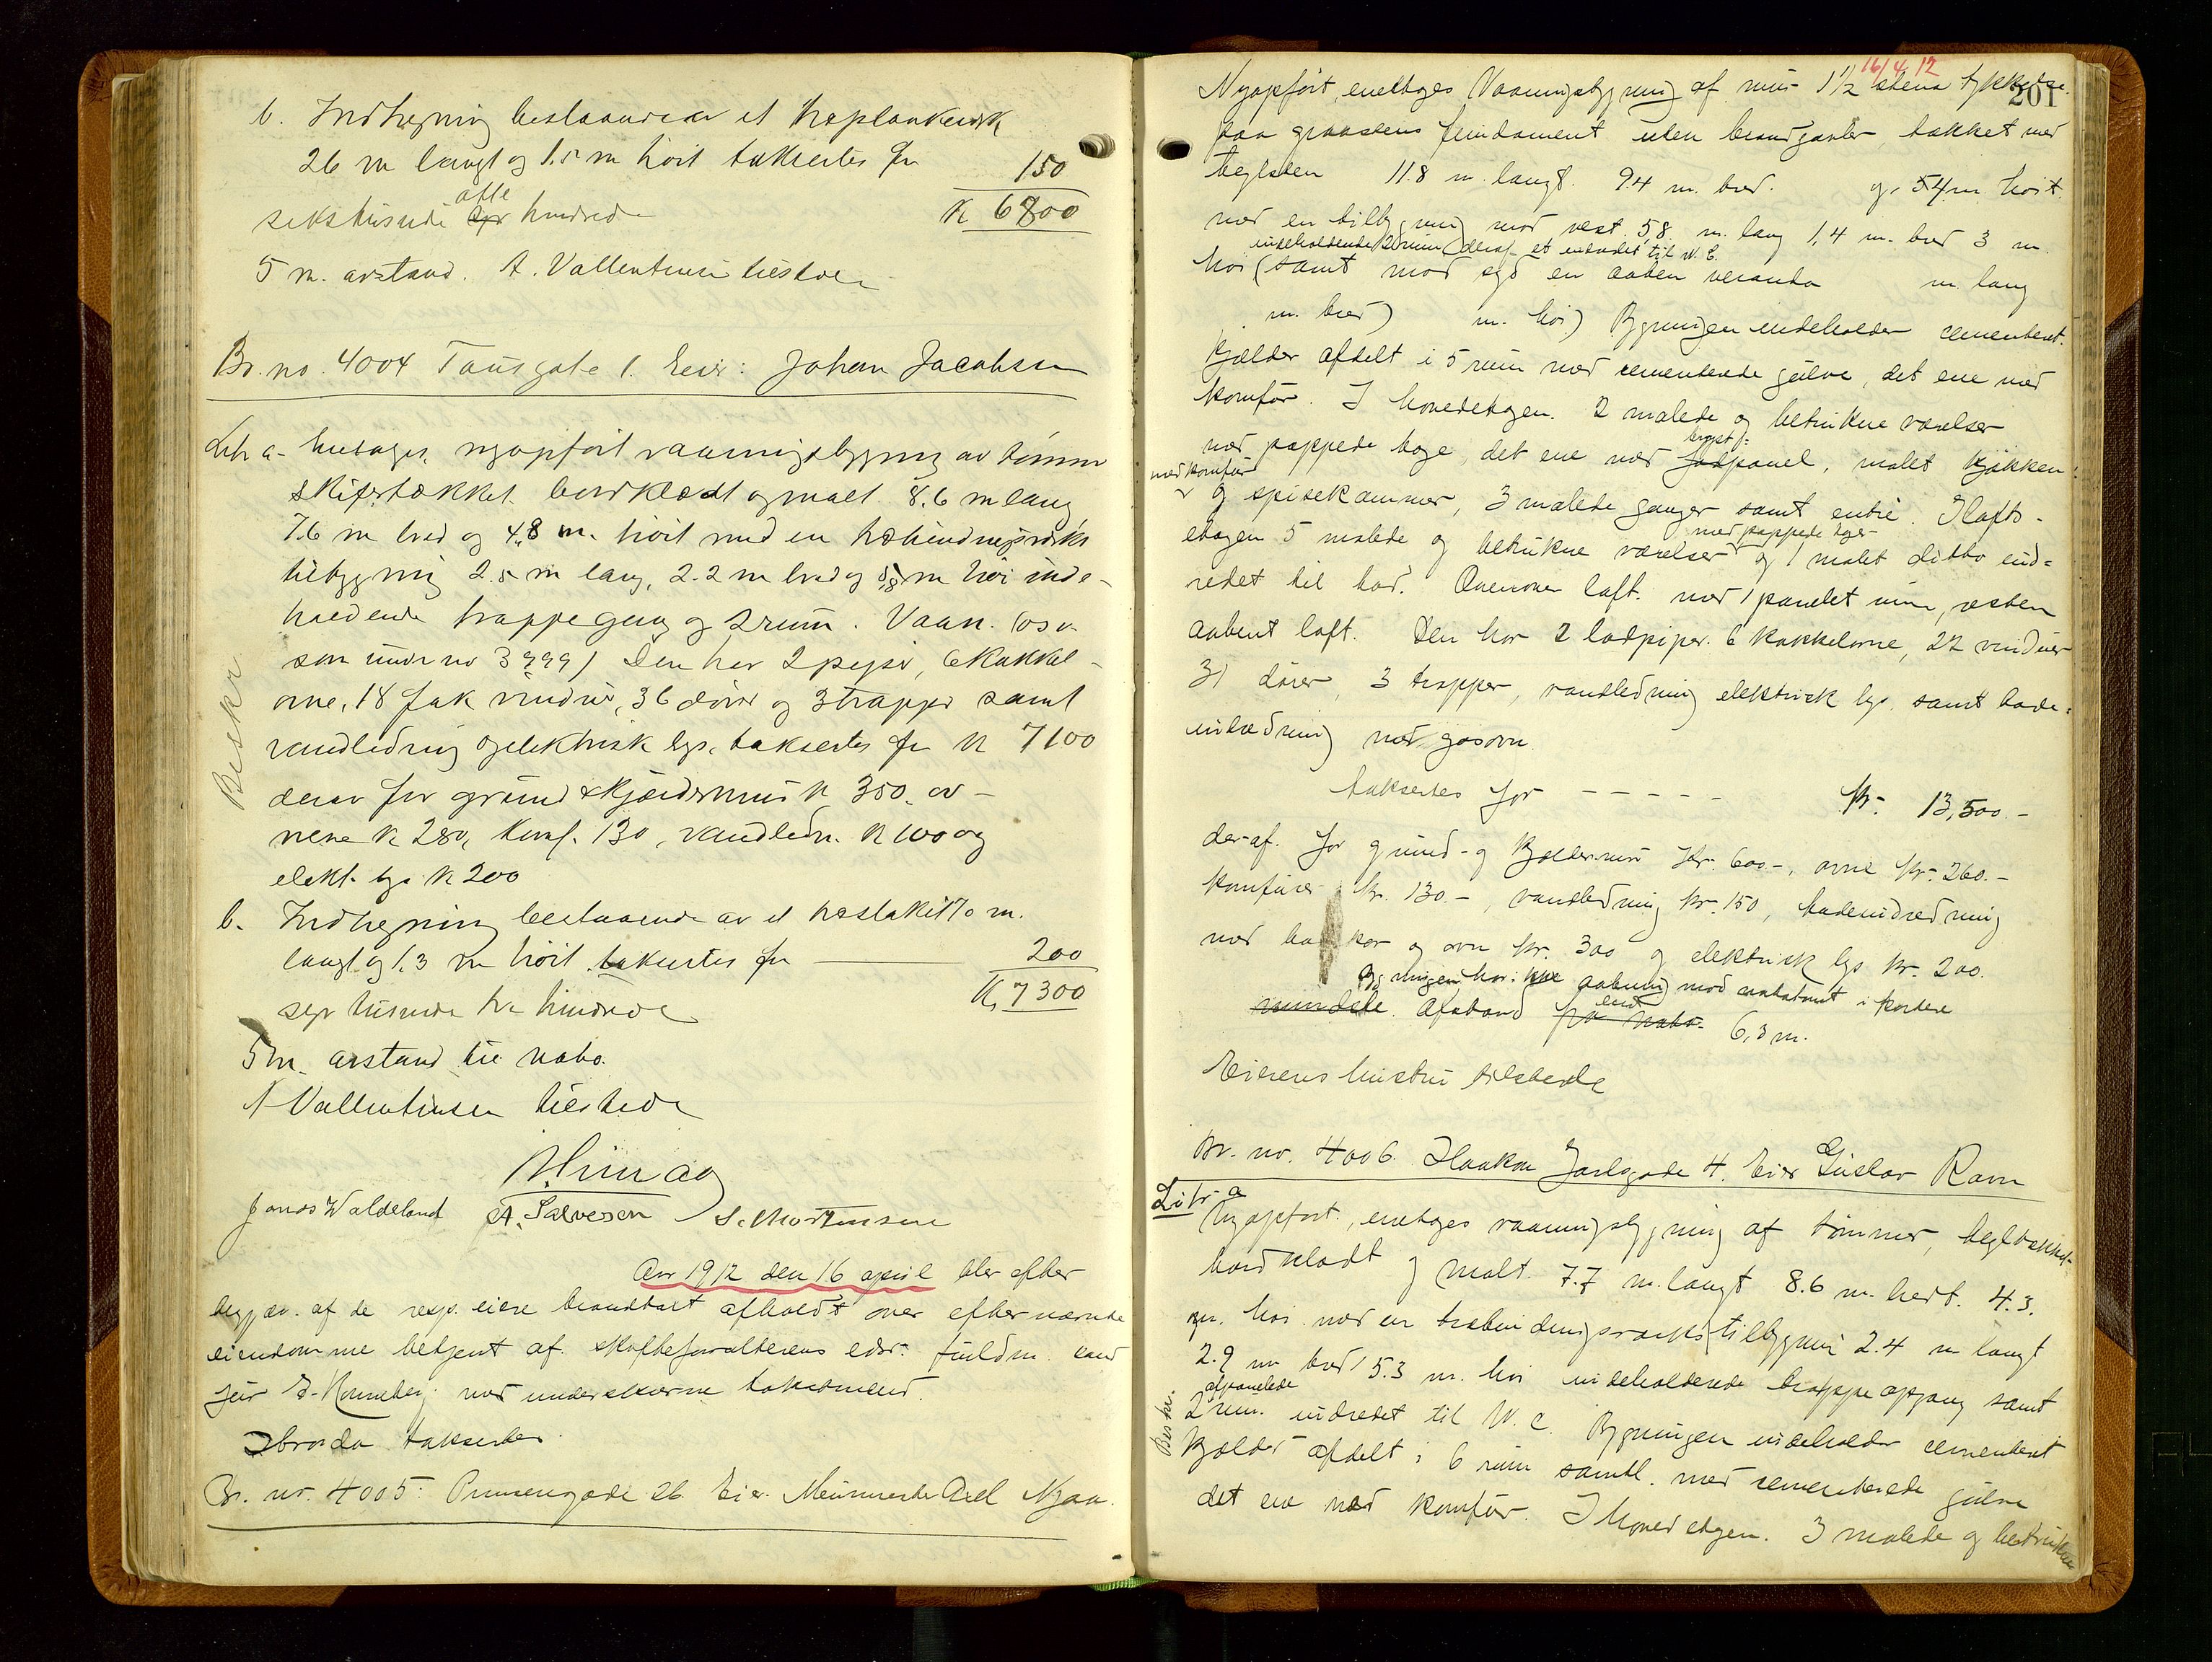 b. Indhegning bestaaende av et træplankeværk
26 m langt og 1.5 m høit taksertes for 150
sekstusinde syv otte hundrede K 6800
5 m. avstand. A. Vallentinsen tilstede
Br. no. 4004 Tausgate 1. Eier: Johan Jacobsen
Litr a- toetages, nyopført vaaningsbygning av tømmer
skifertækket bordklædt og malt 8.6 m lang
7.6 m bred og 4,8 m. høit med en træbindingsværks
tilbygning 2.5 m lang, 2.2 m bred og 5,8 m høi inde-
holdende trappegang og 2 rum. Vaan. (osv.
som under no 3999) Den har 2 peiser, 6 kakkel-
ovne, 18 fak vinduer, 36 dører og 3 trapper samt
vandledning og elektrisk lys, taksertes for K 7100
derav for grund & kjældermur K 350, ov-
nene K 280, komf. 130, vandledn. K 100 og
elekt. lys K 200
Beskr
b. Indhegning bestaaende av et træstakit 70 m.
langt og 1.3 m høit taksertes for 200
syv tusinde tre hundrede K 7300
5 m. avstand til nabo.
A Vallentinsen tilstede
Jonas Waldeland A. Salvesen S. Mortensen
Aar 1912 den 16 april blev efter
begjær. af de resp. eiere brandtakst afholdt over efternævnte
eiendomme betjent af skifteforvalterens edsv. fuldm. cand
jur E. Konneberg med underskrevne takstmænd
Ibrada taksertes
Br. nr. 4005: Prinsensgade 26 Eier Murmester Axel Nyaa.
16/4 12
201
Nyopført, enetages Vaaningsbygning af mur 1 1/2 stens tykkelse
paa graastens fundament uten brandgavler, tækket med
teglsten 11.8 m. langt. 9.4 m. bred. og 5.4 m høit.
med en tilbygning mod vest 5,8 m. lang 1,4 m. bred 3 m.
indeholdende 2 rum (deraf et indredet til W. C.
høi (samt mod syd en aaben veranda m lang
m. bred) m. høi) Bygningen indeholder cementeret
kjælder afdelt i 5 rum med cementerede gulve, det ene med
komfur. I hovedetagen. 2 malede og betrukne værelser
med pappede tage, det ene med fodpanel bryst-, malet kjøkken
med komfur
og spisekammer, 3 malede ganger samt entre. I lofts-
etagen 5 malede og betrukne værelser med pappede tage og 1 malet ditto ind-
redet til bad. Ovenover loft. med 1 panelet rum, resten
aabent loft. Den har 2 lodpiper. 6 kakkelovne, 22 vinduer
31 dører, 3 trapper, vandledning elektrisk lys samt bade-
indredning med gasovn.
taksertes for ----- kr. 13,500.-
deraf. for grund- og kjældermur kr. 600.-, ovne kr. 260.-
komfurer kr. 130.-, vandledning kr. 150, badeindredning
med badekar og ovn kr. 300 og elektrisk lys kr. 200.
Bygningen har ikke aabning mod nabotomt i kortere
mindste Afstand fra nabo end 6,3 m.
Eierens hustru tilstede
Br. nr. 4006. Haakon Jarlsgade 4. Eier Gustav Ravn
Litr. a
Nyopført, enetages vaaningsbygning af tømmer, tegltækket
bordklædt og malt. 7.7 m. langt 8.6 m. bredt. 4.3.
m. høi med en træbindingsværkstilbygning 2.4 m langt
2.9 m bred 5.3 m. høi indeholdende trappeopgang samt
2 afpanelede rum. indredet til W. C. Bygningen indeholder cementeret
Beskr.
kjælder afdelt i 6 rum samtl. med cementerede gulve
det ene med komfur. I hovedetagen. 3 malede og betrukne